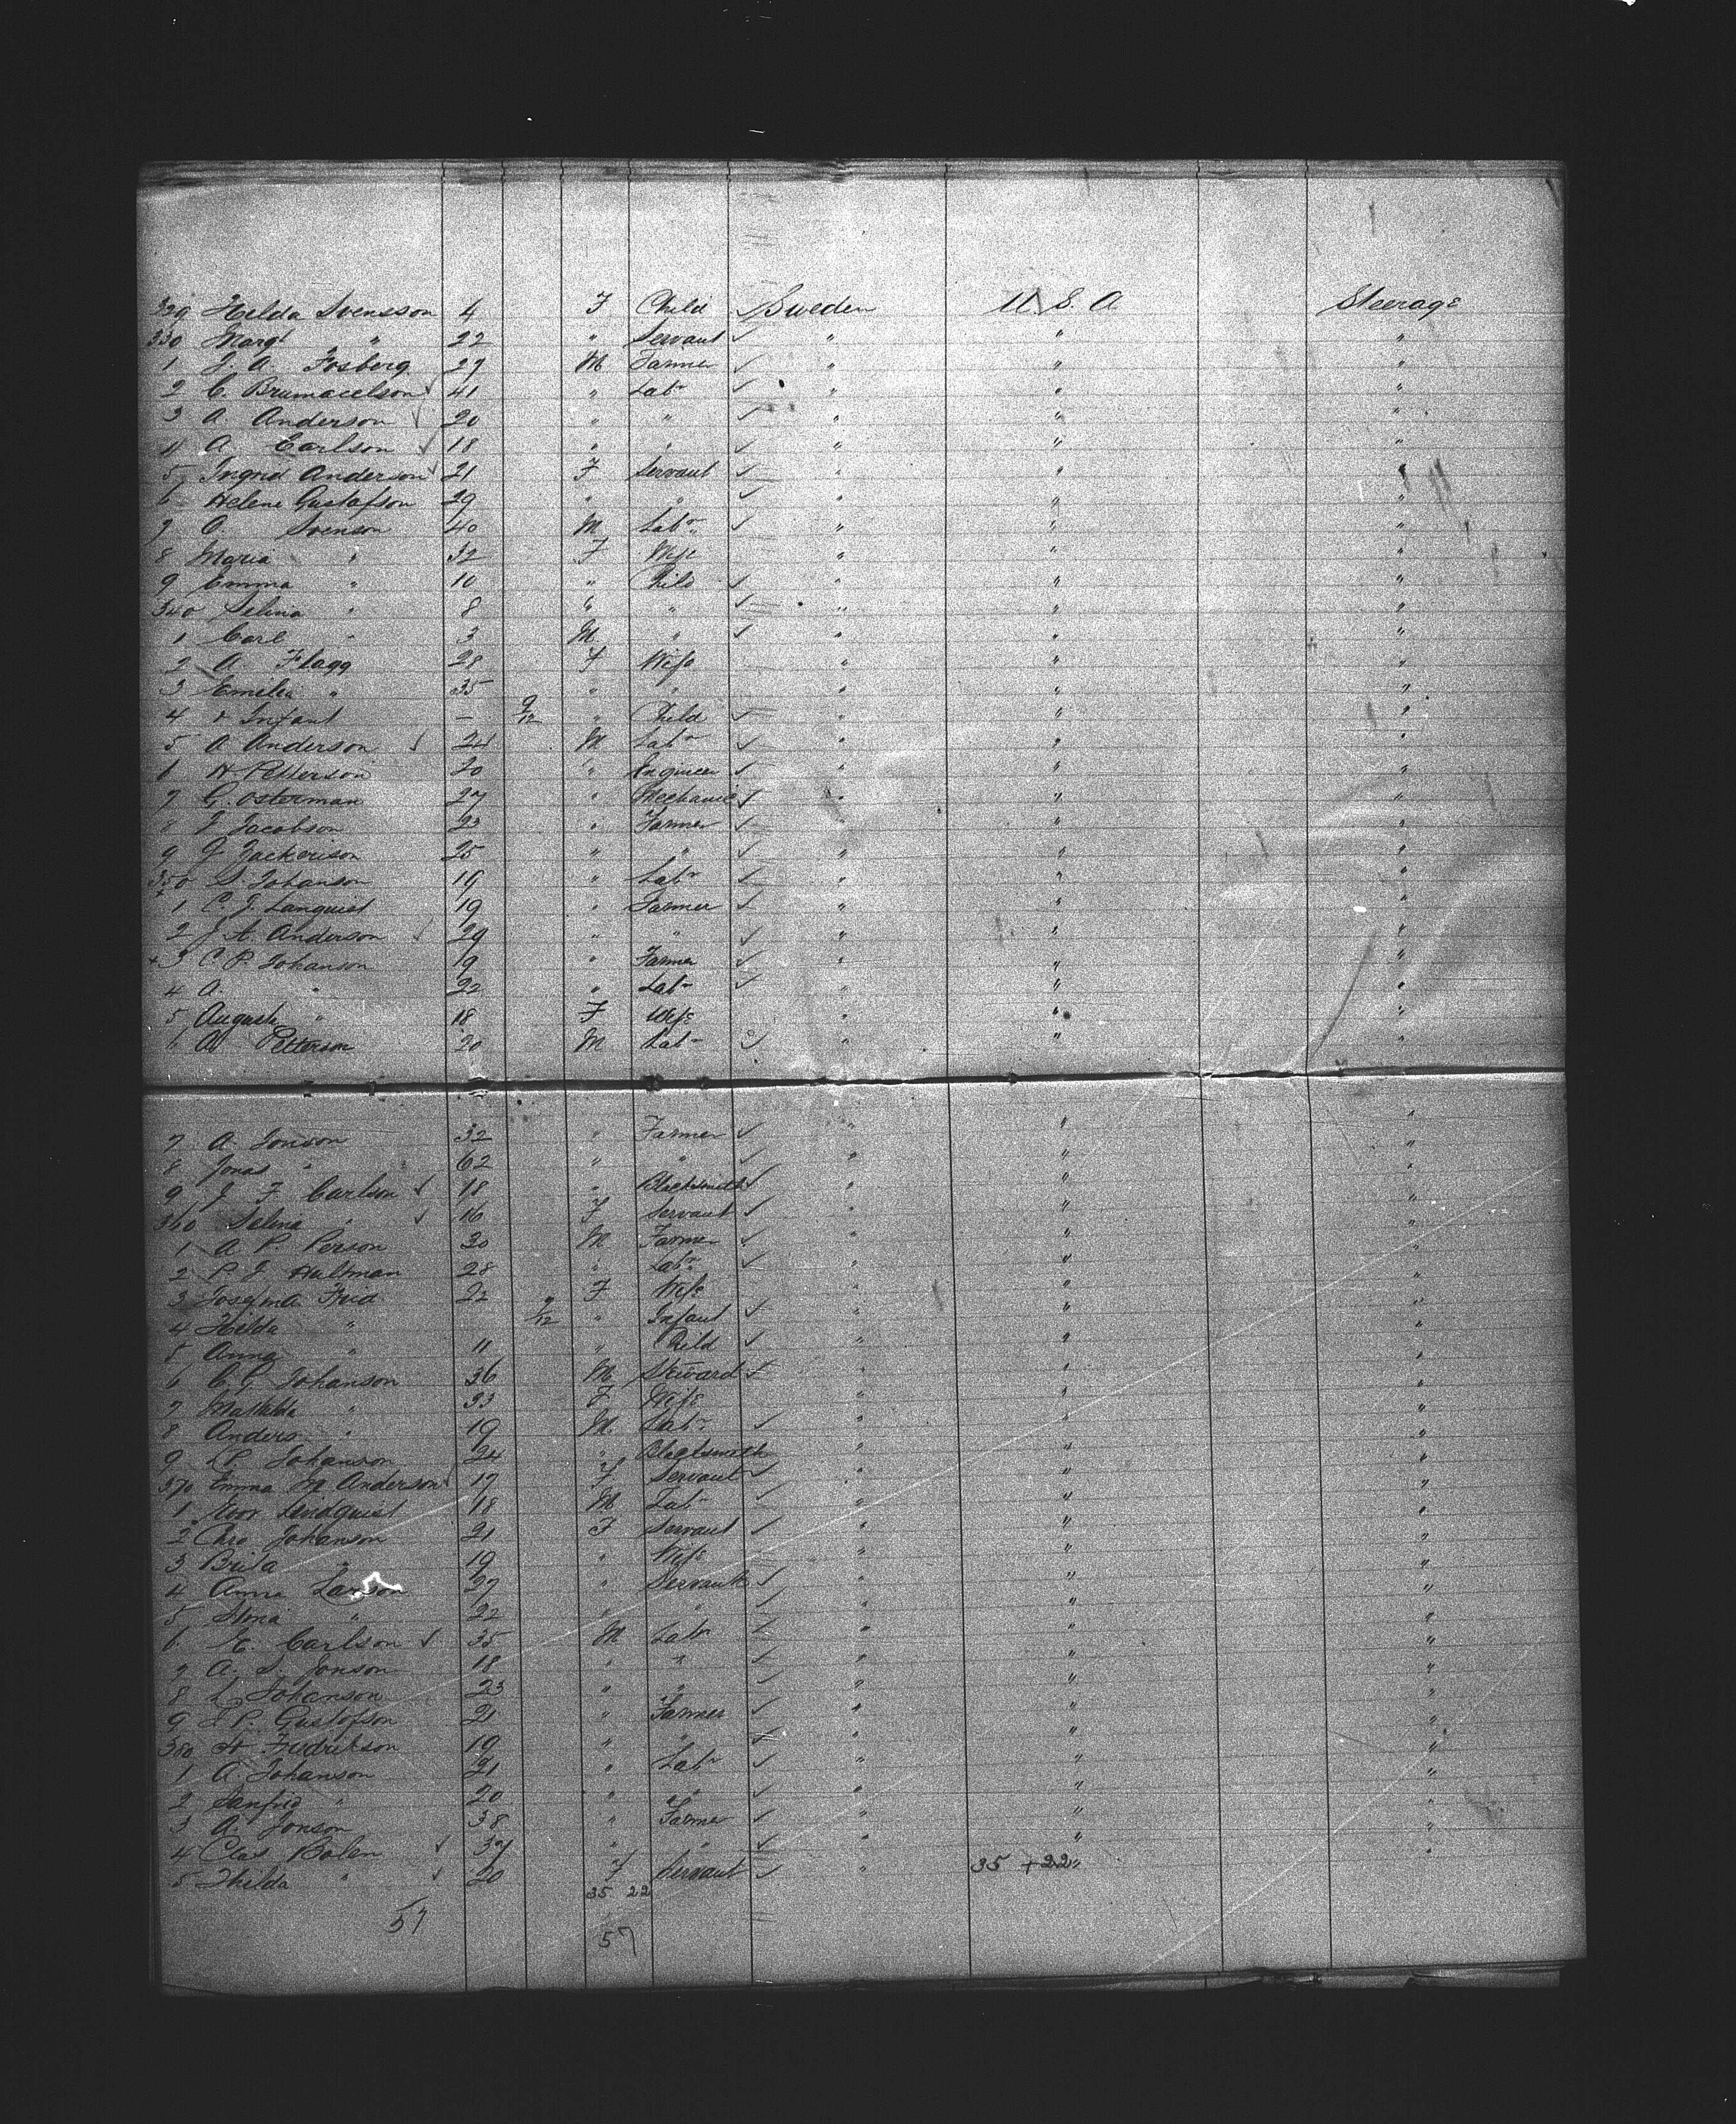 329 Helda Svensson 4 F Child ✓ Sweden U. S. A Steerage
330 Margt " 22 " Servant ✓ " " "
1 J. A. Fosberg 27 M Farmer ✓ " " "
2 C. Brumacelson ✓ 41 " Labr ✓ " " "
3 A. Anderson ✓ 20 " " ✓ " " "
4 A. Carlson ✓ 18 " " ✓ " " "
5 Ingrid Anderson ✓ 21 F Servant ✓ " " "
6 Helene Gustafson 29 " " ✓ " " "
7 Svenson 40 M Labr ✓ " " "
8 Maria " 32 F Wife " " "
9 Emma " 10 " Child ✓ " " "
340 Selina " 8 " " ✓ " " "
1 Carl " 3 M " ✓ " " "
2 A Flagg 28 F Wife " " "
3 Emilia " 35 " " " " "
4 & Infant — 9/12 " Child ✓ " " "
5 A Anderson ✓ 24 M Labr ✓ " " "
6 H Petterson 20 " Engineer ✓ " " "
7 G. Osterman 27 " Mechanic ✓ " " "
8 J Jacobson 23 " Farmer ✓ " " "
9 J Jackerison 25 " " ✓ " " "
350 S Johanson 19 " Labr ✓ " " "
1 C. J. Lanquist 19 " Farmer ✓ " " "
2 J. A. Anderson ✓ 29 " " ✓ " " "
+ 3 C. P. Johanson 19 " Farmer ✓ " " "
4 A. " 22 " Labr ✓ " " "
5 Augusta " 18 F Wife " " "
" Petterson 20 M Labr ✓ " " "
7 A. Jonson 32 " Farmer ✓ " " "
8 Jonas " 62 " " ✓ " " "
9 J F Carlson ✓ 18 " Blacksmith ✓ " " "
360 Selina " ✓ 16 F Servant ✓ " " "
1 A P. Person 20 M Farmer ✓ " " "
2 P J Hultman 28 " Labr ✓ " " "
3 Josefina Frid 22 F Wife " " "
4 Helda " /12 " Infant ✓ " " "
5 Anna " 11 " Child ✓ " " "
6 C. G. Johanson 36 M Steward ✓ " " "
7 Mathilda " 33 F Wife " " "
8 Anders " 19 M Labr ✓ " " "
9 P. Johanson 24 " Blacksmith " " "
370 Emma M Anderson ✓ 17 F Servant ✓ " " "
1 Lindquist 18 M Labr ✓ " " "
2 Caro. Johanson 21 F Servant ✓ " " "
3 Brita " 19 " Wife " " "
4 Anna Larson 27 " Servant ✓ " " "
5 " 22 " " ✓ " " "
6 E. Carlson ✓ 35 M Labr ✓ " " "
7 A. S. Jonson 18 " " ✓ " " "
8 L. Johanson 23 " " ✓ " " "
9 P. Gustofson 21 " Farmer ✓ " " "
380 H Fredrikson 19 " " ✓ " " "
1 A. Johanson 21 " Labr ✓ " " "
2 Sanfrid " 20 " " ✓ " " "
3 A. Jonson 38 " Farmer ✓ " " "
4 Clas Bolen ✓ 37 " " ✓ " " "
5 Thilda " ✓ 20 F Servant ✓ " 35 + 22 " "
35 22
57 57